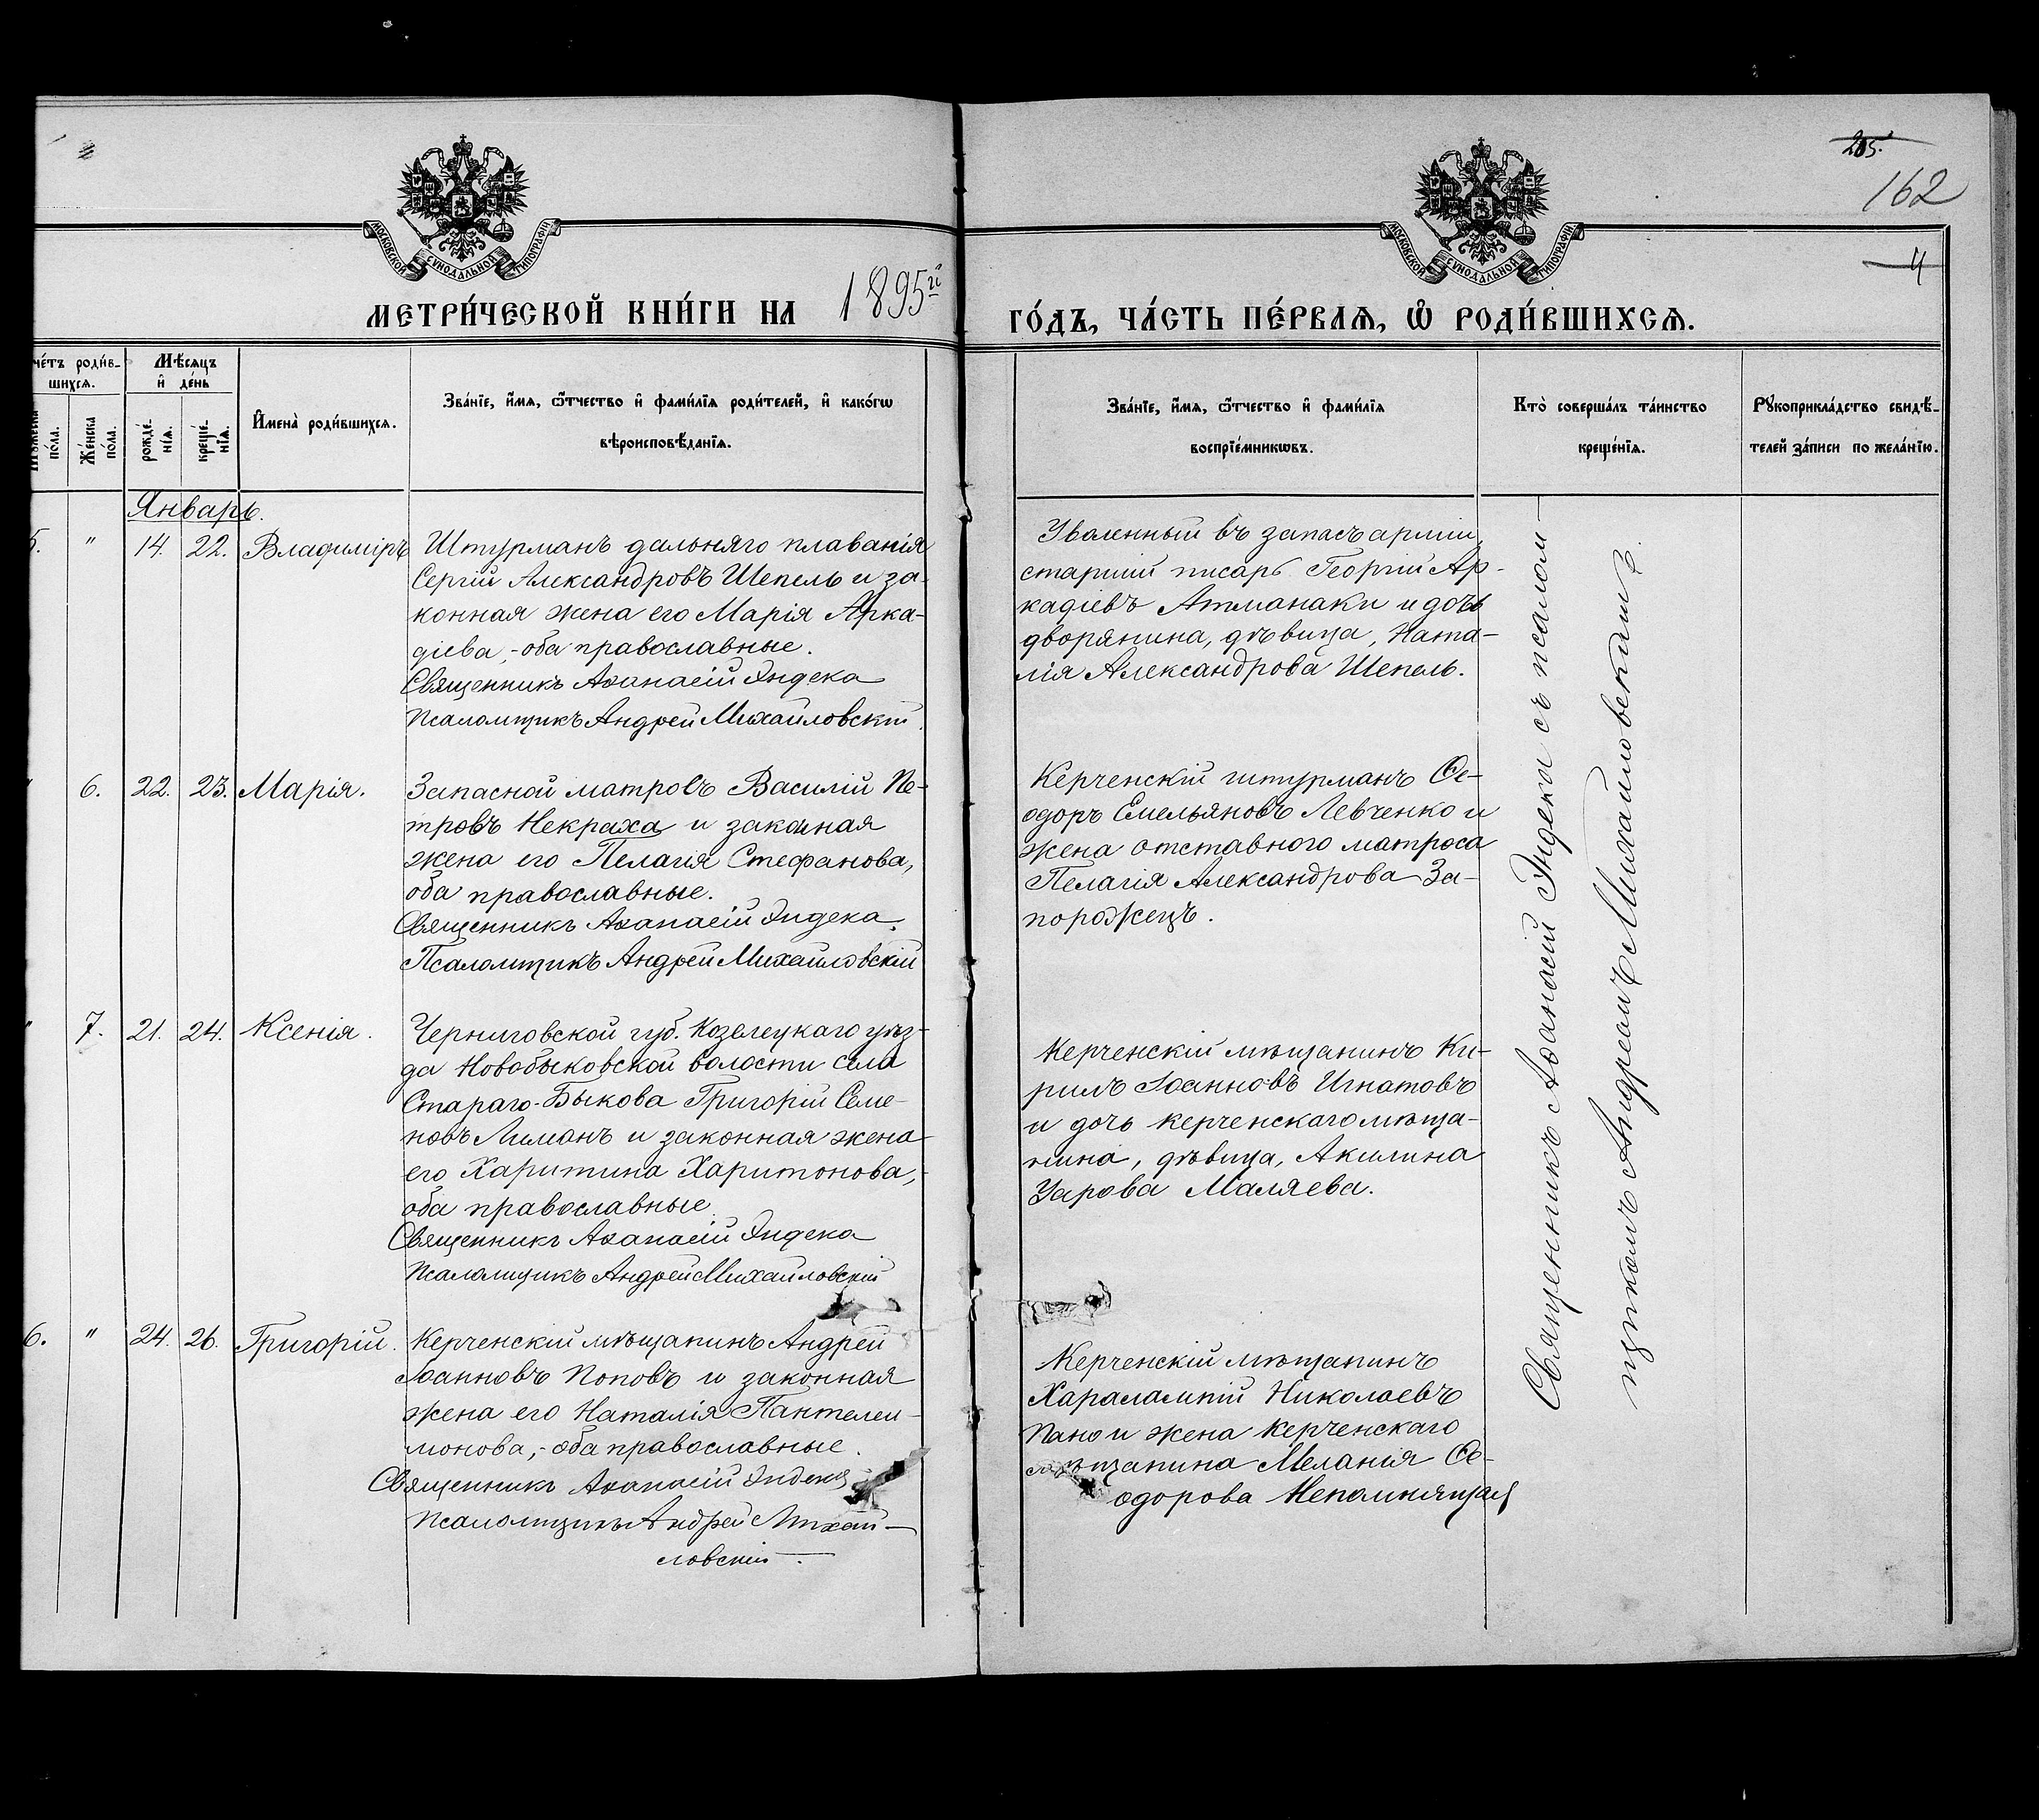 205.
162
4
МОСКОВСКОЙ СУНОДАЛЬНОЙ ТИПОГРАФІИ
МЕТРИ́ЧЕСКОЙ КНИ́ГИ НА 1895й
МОСКОВСКОЙ СУНОДАЛЬНОЙ ТИПОГРАФІИ
ГО́ДЪ, ЧА́СТЬ ПЕ́РВАѦ, Ѡ РОДИ́ВШИХСѦ.
че́тъ роди́в-
шихсѧ.
по́ла.
Же́нска
по́ла.
Мѣ́сѧцъ
и҆ де́нь
рожде́-
нїѧ.
креще́-
нїѧ.
И҆мена̀ роди́вшихсѧ.
Зва́нїе, и҆́мѧ, ѻ҆́тчество и҆ фами́лїѧ роди́телей, и҆ како́гѡ
вѣроисповѣ́данїѧ.
Зва́нїе, и҆́мѧ, ѻ҆́тчество и҆ фами́лїѧ
воспрїе́мникѡвъ.
Кто̀ соверша́лъ та́инство
креще́нїѧ.
Рꙋкоприкла́дство свидѣ́-
телей за́писи по жела́нїю.
Январь.
5. " 14. 22. Владиміръ
Штурманъ дальняго плаванія
Сергій Александровъ Шепель и за-
конная жена его Марія Арка-
діева,-оба православные.
Священникъ Аѳанасій Яндека
Псаломщикъ Андрей Михайловскій.
Уволенный въ запасъ арміи,
старшій писарь Георгій Ар-
кадіевъ Атманаки и дочь
дворянина, дѣвица, Ната-
лія Александрова Шепель.
" 6. 22. 23. Марія.
Запасной матросъ Василій Пе-
тровъ Некраха и законная
жена его Пелагія Стефанова,
оба православные.
Священникъ Аѳанасій Яндека.
Псаломщикъ Андрей Михайловскій
Керченскій штурманъ Ѳе-
одоръ Емельяновъ Левченко и
жена отставного матроса
Пелагія Александрова За-
порожецъ.
" 7. 21. 24. Ксенія.
Черниговской губ. Козелецкаго уѣз-
да Новобыковской волости села
Стараго-Быкова Григорій Семе-
новъ Лиманъ и законная жена
его Харитина Харитонова,-
оба православные.
Священникъ Аѳанасій Яндека
Псаломщикъ Андрей Михайловскій
Керченскій мѣщанинъ Ки-
рилъ Іоанновъ Игнатовъ
и дочь керченскаго мѣща-
нина, дѣвица, Акилина
Уарова Маляева.
6. " 24. 26. Григорій.
Керченскій мѣщанинъ Андрей
Іоанновъ Поповъ и законная
жена его Наталія Пантелеи-
монова,-оба православные.
Священникъ Аѳанасій Яндека
Псаломщикъ Андрей Михай-
ловскій.
Керченскій мѣщанинъ
Харалампій Николаевъ
Пано и жена керченскаго
мѣщанина Меланія Ѳе-
одорова Непомнящая
Священникъ Аѳанасій Яндека съ псалом-
щикомъ Андреемъ Михайловскимъ.